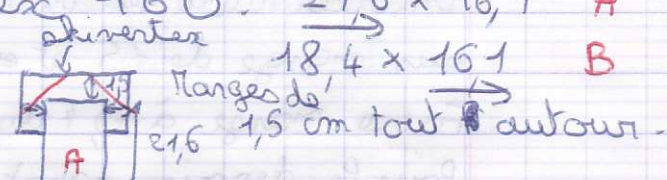 160. 21,6 x 16,1 A
skivertex
18,4 x 161 B
1,5 Marges de
21,6 1,5 cm tout autour.
A